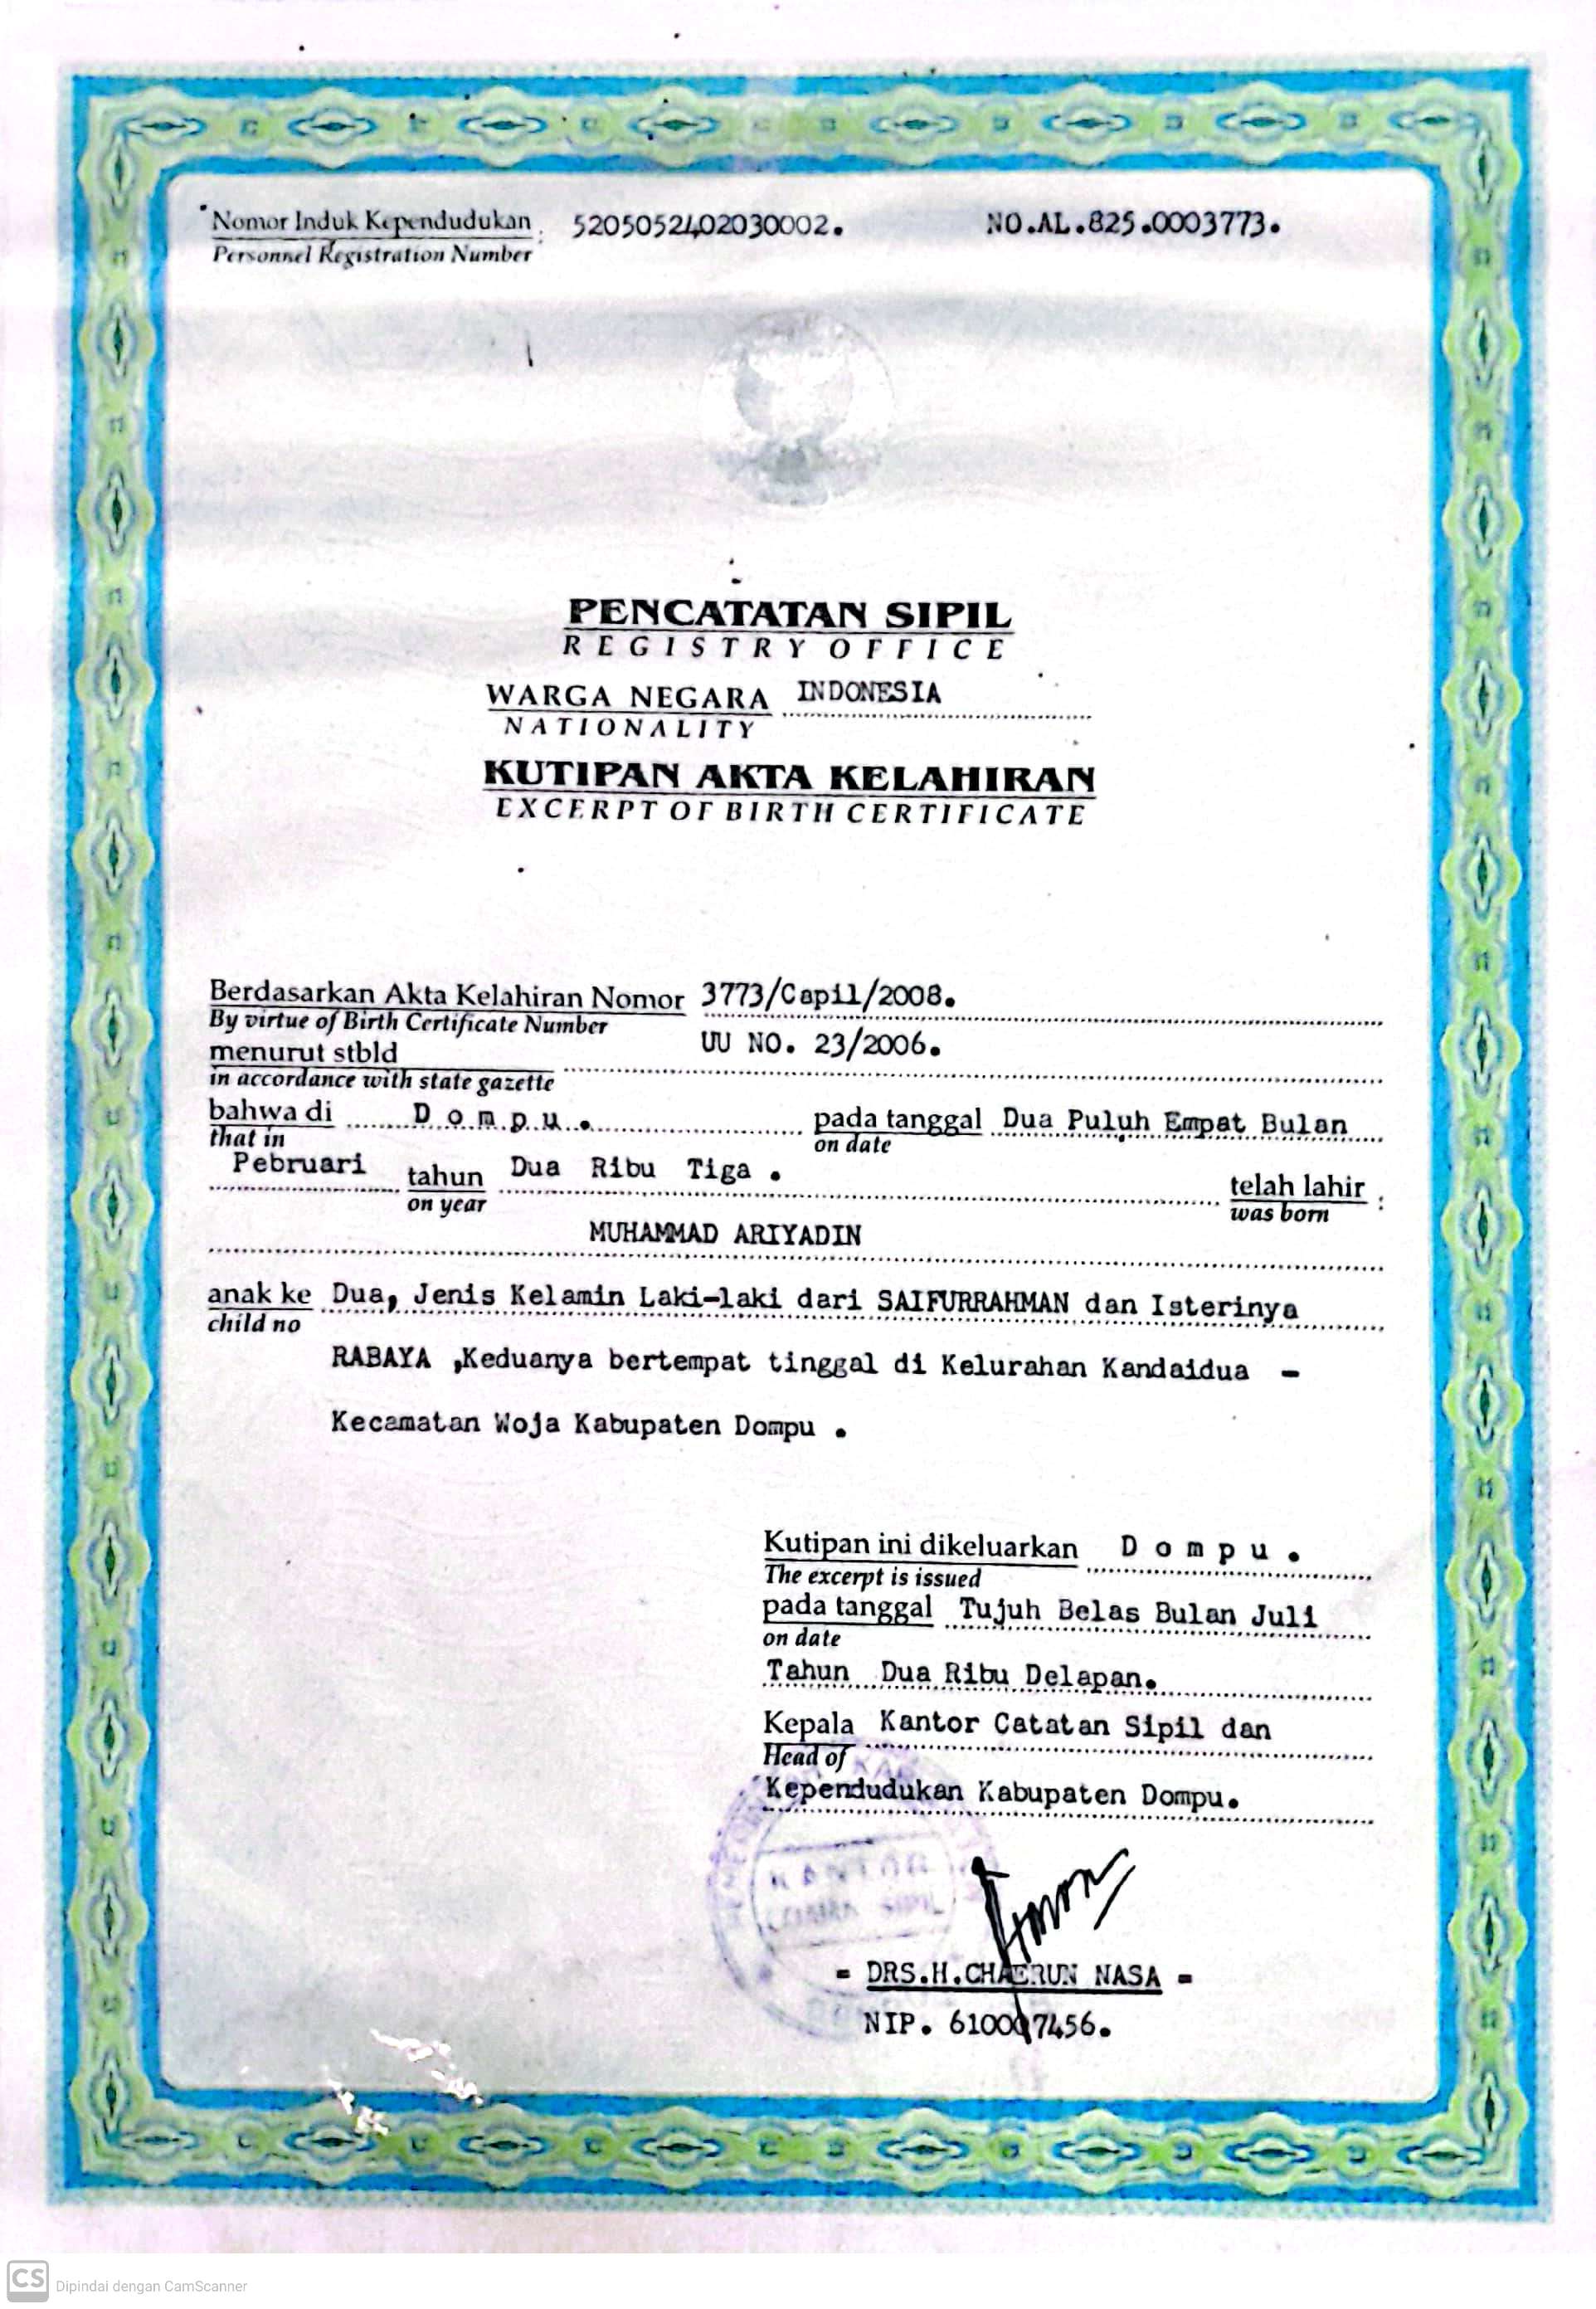 Nomor Induk Kependudukan : 5205052402030002. NO.AL.825.0003773.
Personnel Registration Number
PENCATATAN SIPIL
REGISTRY OFFICE
WARGA NEGARA INDONESIA
NATIONALITY
KUTIPAN AKTA KELAHIRAN
EXCERPT OF BIRTH CERTIFICATE
Berdasarkan Akta Kelahiran Nomor 3773/Capil/2008.
By virtue of Birth Certificate Number
menurut stbld UU NO. 23/2006.
in accordance with state gazette
bahwa di D o m p u . pada tanggal Dua Puluh Empat Bulan
that in on date
Pebruari tahun Dua Ribu Tiga . telah lahir :
on year was born
MUHAMMAD ARIYADIN
anak ke Dua, Jenis Kelamin Laki-laki dari SAIFURRAHMAN dan Isterinya
child no
RABAYA ,Keduanya bertempat tinggal di Kelurahan Kandaidua -
Kecamatan Woja Kabupaten Dompu .
Kutipan ini dikeluarkan D o m p u .
The excerpt is issued
pada tanggal Tujuh Belas Bulan Juli
on date
Tahun Dua Ribu Delapan.
Kepala Kantor Catatan Sipil dan
Head of
Kependudukan Kabupaten Dompu.
SIPIL
= DRS.H.CHAERUN NASA =
NIP. 610007456.
CS Dipindai dengan CamScanner